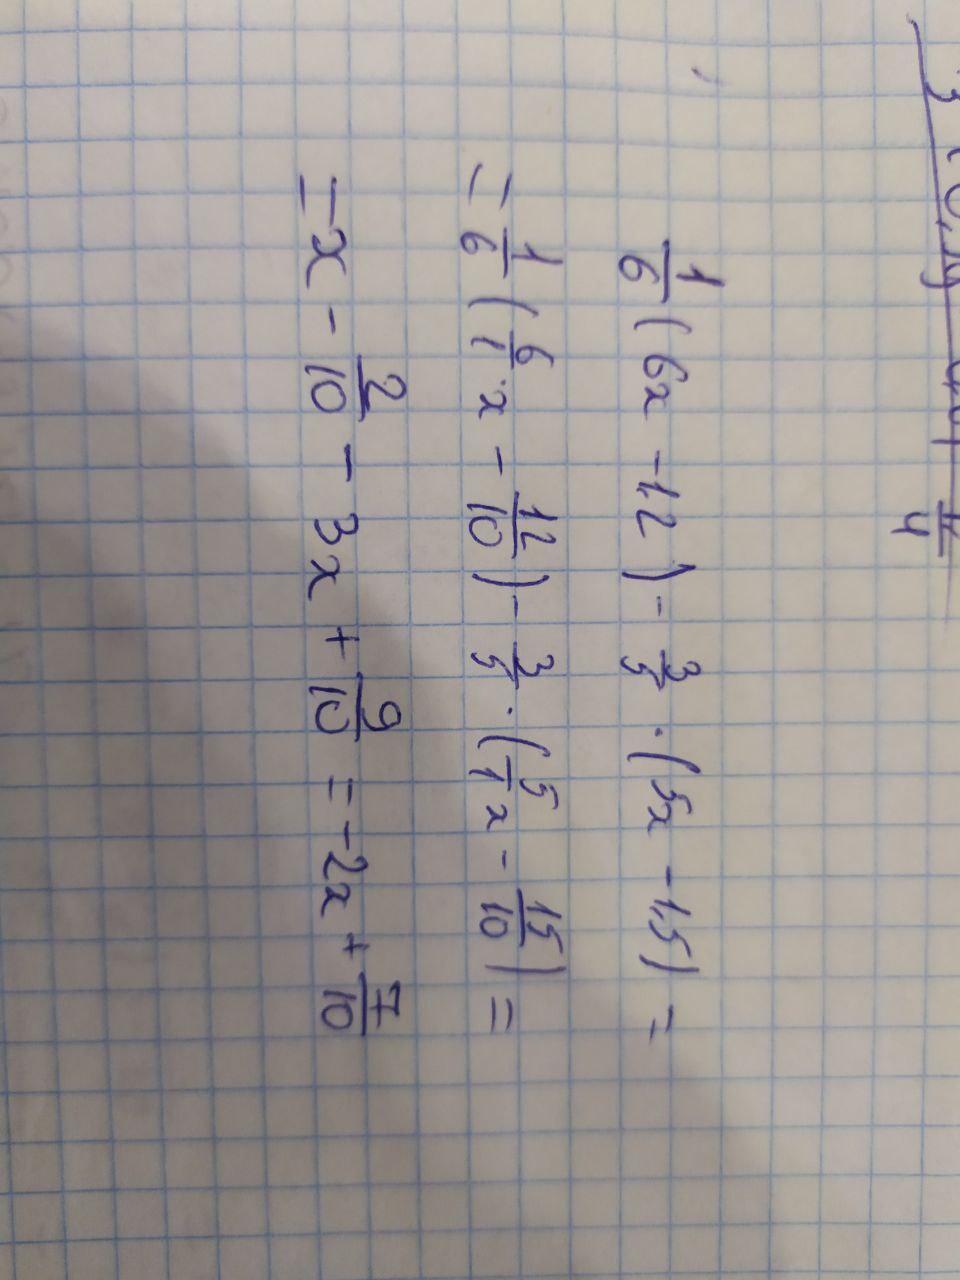 1/6 (6x - 1,2) - 3/5 · (5x - 1,5) =
= 1/6 (6/1 · x - 12/10) - 3/5 · (5/1 x - 15/10) =
= x - 2/10 - 3x + 9/10 = -2x + 7/10